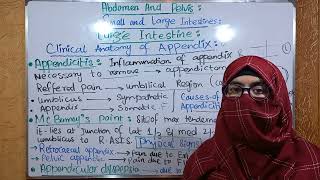 Abdomen And Pelvis:
Small and Large Intestines:
Large Intestine:
Clinical Anatomy of Appendix:
Appendicitis: Inflammation of appendix
Necessary to remove → appendictom
Reffered pain → umbilical Region (c
umbilicus → Sympathetic
Appendix → Somatic
Causes of Appendicitis
Mc Burney's point: Site of max tender
it lies at junction of lat 1/3 & mod 2/
umbilicus to R-ASIS
Physical Signs
Retrocaecal appendix → Pain due to Ex
Pelvic appendix → Pain due to F
Appendicular dyspepsia → due